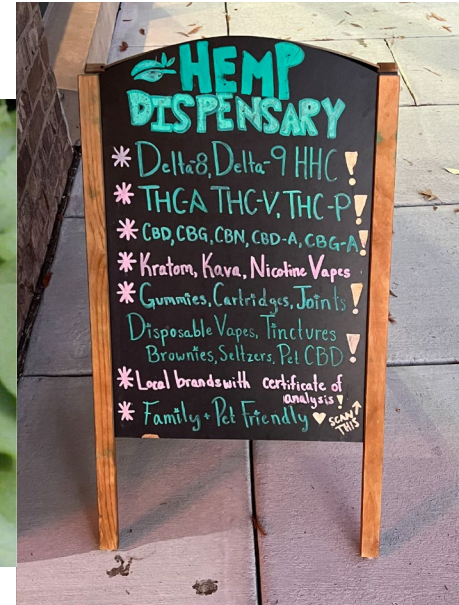 HEMP
DISPENSARY
* Delta-8, Delta-9 HHC!
* THC-A THC-V, THC-P!
* CBD, CBG, CBN, CBD-A, CBG-A!
* Kratom, Kava, Nicotine Vapes
* Gummies, Cartridges, Joints!
Disposable Vapes, Tinctures
Brownies, Seltzers, Pet CBD!
* Local brands with certificate of
analysis!
* Family + Pet Friendly ♥
SCAN ↑
THIS